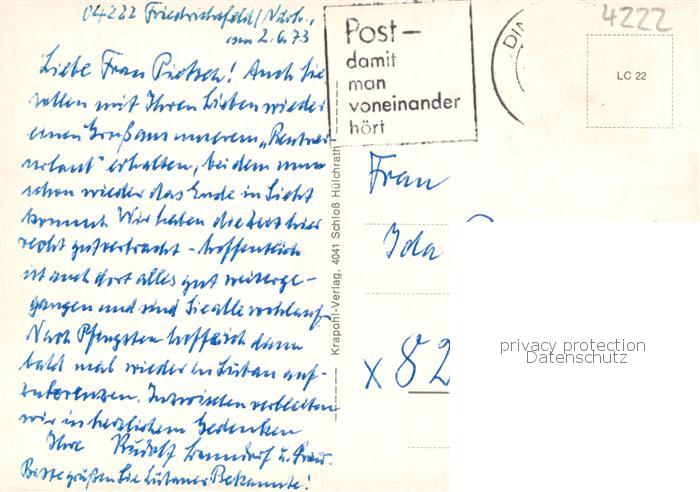 04222 Friedrichsfeld/Ndrh.,
am 2.6.73
Liebe Frau Pietsch! Auch Sie
sollen mit Ihren Lieben wieder
einen Gruß aus unserem „Rentner-
urlaub" erhalten, bei dem nun
schon wieder das Ende in Sicht
kommt. Wir haben die Zeit hier
recht gut verbracht - hoffentlich
ist auch dort alles gut weiterge-
gangen und sind Sie alle wohlauf.
Nach Pfingsten hoffe ich dann
bald mal wieder in auf-
zukreuzen. Inzwischen verbleiben
wir in herzlichem Gedenken
Ihre Rudolf u. Frau.
Bitte grüßen Sie Bekannte!
Krapohl-Verlag, 4041 Schloß Hülchrath
Post-
damit
man
voneinander
hört
DIN
4222
LC 22
Frau
Ida
x 82
privacy protection
Datenschutz